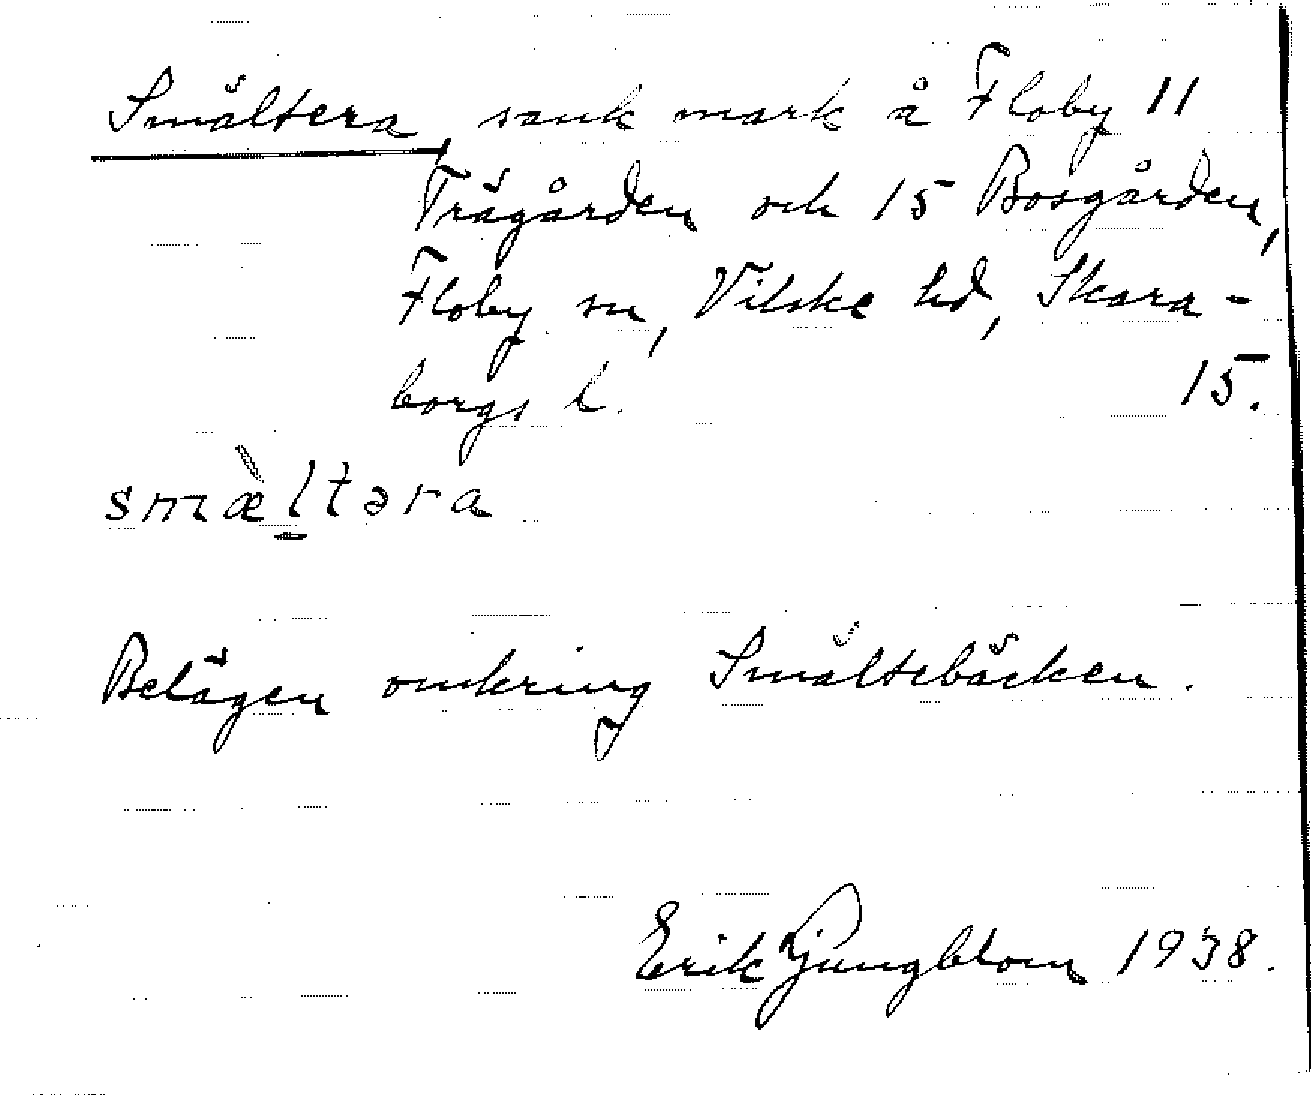 Smältera, sank mark å Floby 11
Trägården och 15 Bosgården,
Floby sn, Vilske hd, Skara-
borgs l. 15.
smæ̀ltəra
Belägen omkring Smältebäcken.
Erik Ljungblom 1938.